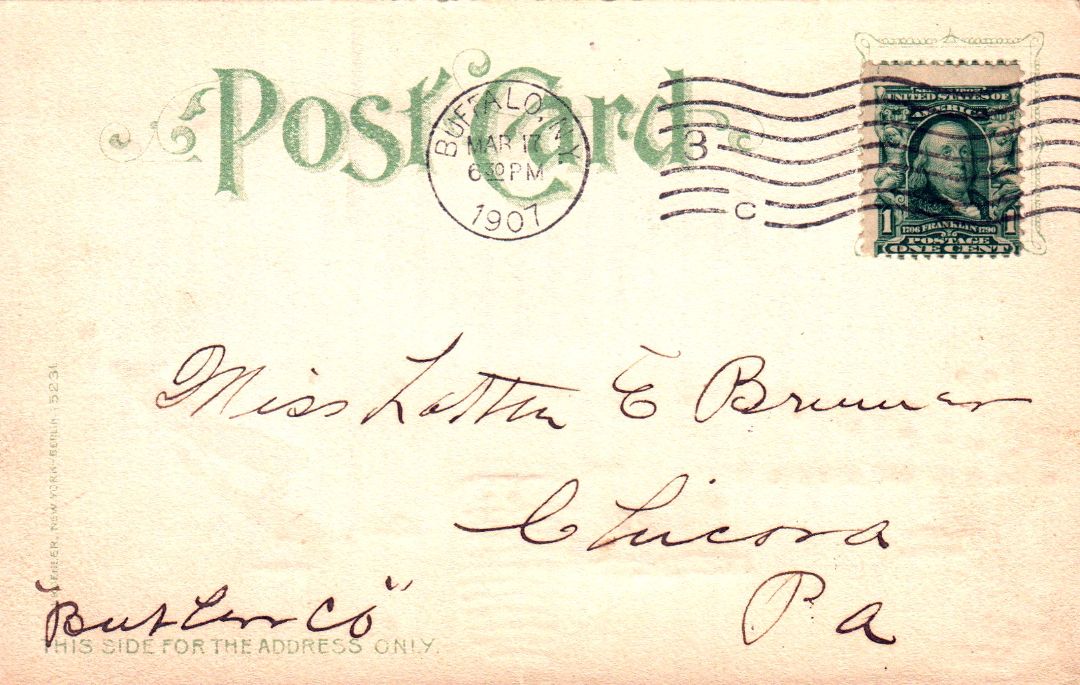 Post Card
BUFFALO, N.Y.
MAR 17
6 30 PM
1907
3
C
SERIES 1902
UNITED STATES OF
AMERICA
1 1
1706 FRANKLIN 1790
POSTAGE
ONE CENT
Miss E Brunner
Chicora
Pa
"Butler Co"
THIS SIDE FOR THE ADDRESS ONLY.
NEW YORK-BERLIN 5231